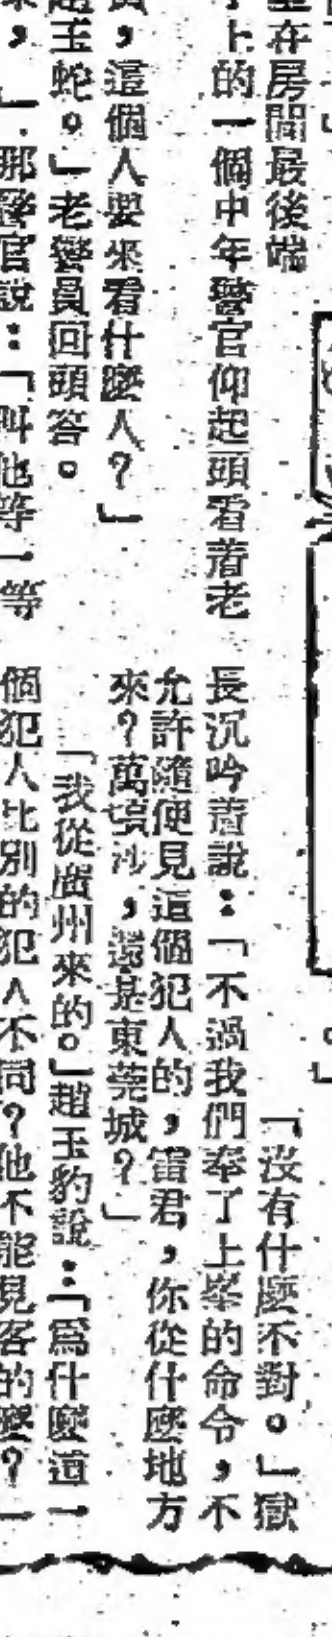 坐在房間最後端
上的一個中年警官仰起頭看着老
，這個人要來看什麼人？」
趙玉蛇。」老警員回頭答。
，」那警官說：「叫他等一等
「沒有什麼不對。」獄
長沉吟着說：「不過我們奉了上峯的命令，不
允許隨便見這個犯人的，雷君，你從什麼地方
來？萬頃沙，還是東莞城？」
「我從廣州來的。」趙玉豹說：「爲什麼這一
個犯人比別的犯人不同？他不能見客的麼？」